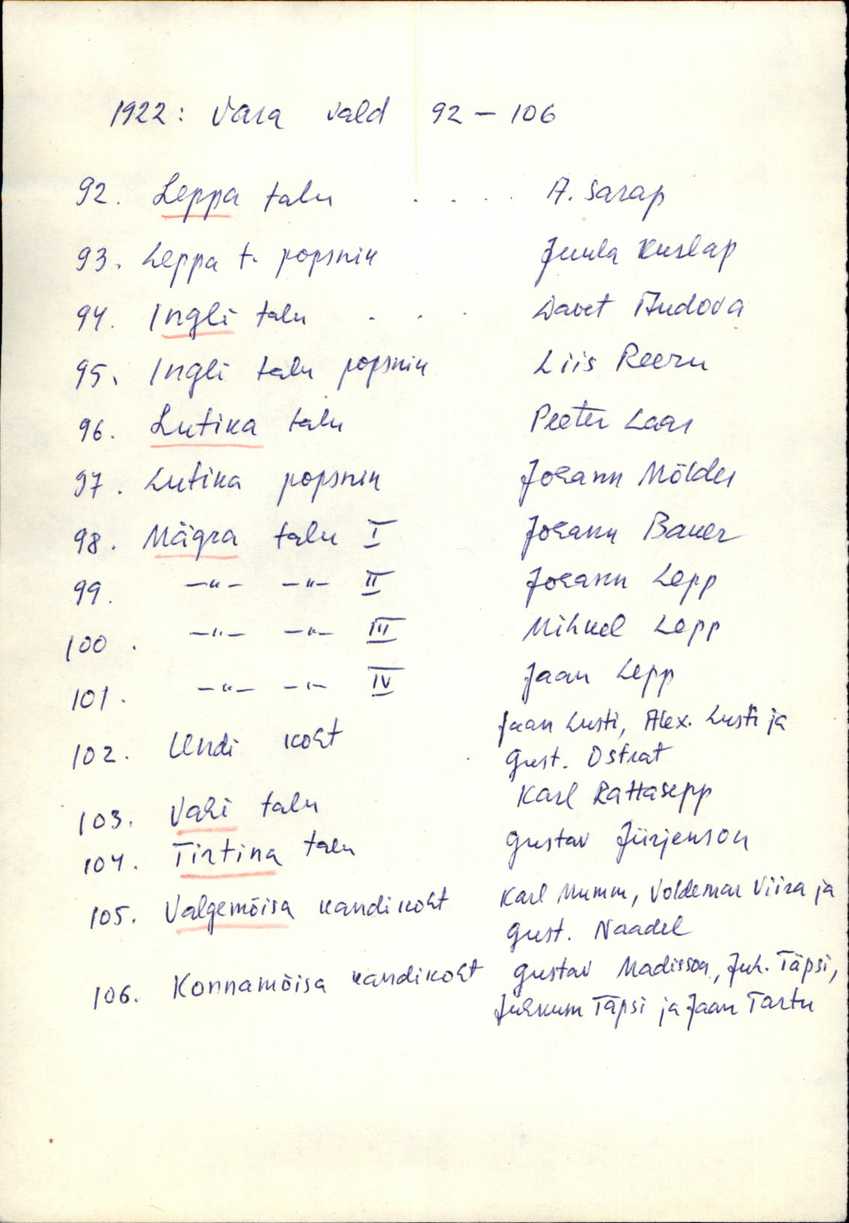 1922: Vara vald 92 – 106
92. Leppa talu . . . . A. Sarap
93. Leppa t. popsniku Juula Kuslap
94. Ingli talu . . . Davet Audova
95. Ingli talu popsniku Liis Reeru
96. Lutika talu Peeter Laas
97. Lutika popsniku Johann Mölder
98. Mägra talu I Johann Bauer
99. –"– –"– II Johann Lepp
100. –"– –"– III Mihkel Lepp
101. –"– –"– IV Jaan Lepp
102. Undi koht Jaan Lusti, Alex. Lusti ja
Gust. Ostrat
103. Vahi talu Karl Rattasepp
104. Tirtina talu Gustav Jürjenson
105. Valgemõisa kandikoht Karl Mumm, Voldemar Viira ja
Gust. Naadel
106. Konnamõisa kandikoht Gustav Madisson, Juh. Täpsi,
Juhkum Täpsi ja Jaan Tartu